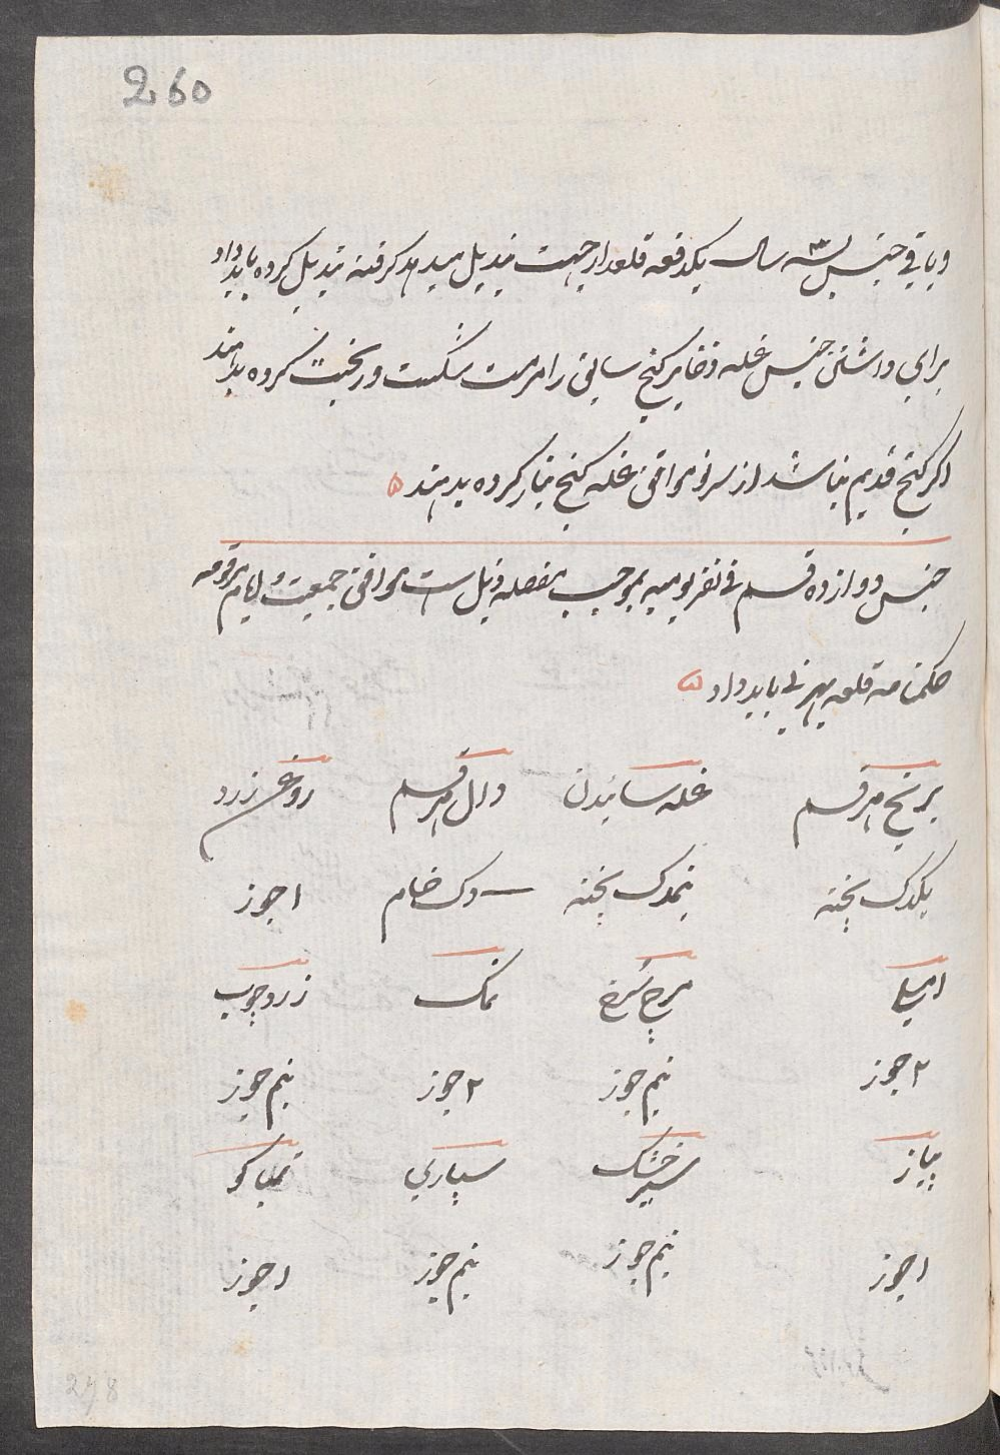 260
و باقی جنس سه ۳ سال یکدفعه قلعدار جهت تبدیل میدهد گرفته تبدیل کرده باید داد
برای داشتن جنس غله ذخایر گنج سابق را مرمت شکست و ریخت کرده بدهند
اگر گنج قدیم نباشد از سرنو موافق غله گنج تیار کرده بدهند ۵
جنس دوازده قسم فی نفر یومیه بموجب مفصله ذیل است موافق جمعیت و ایام مرقومه
حکمنامه قلعه مهری باید داد ۵
برنج هر قسم غله ساندن دال هر قسم روغن زرد
یکدک پخته نیمدک پخته سه دک خام ۱ جوز
املی مرچ سرخ نمک زردچوب
۲ جوز نیم جوز ۲ جوز نیم جوز
پیاز سیر خشک سپاری تمباکو
۱ جوز نیم جوز نیم جوز ۱ جوز
258